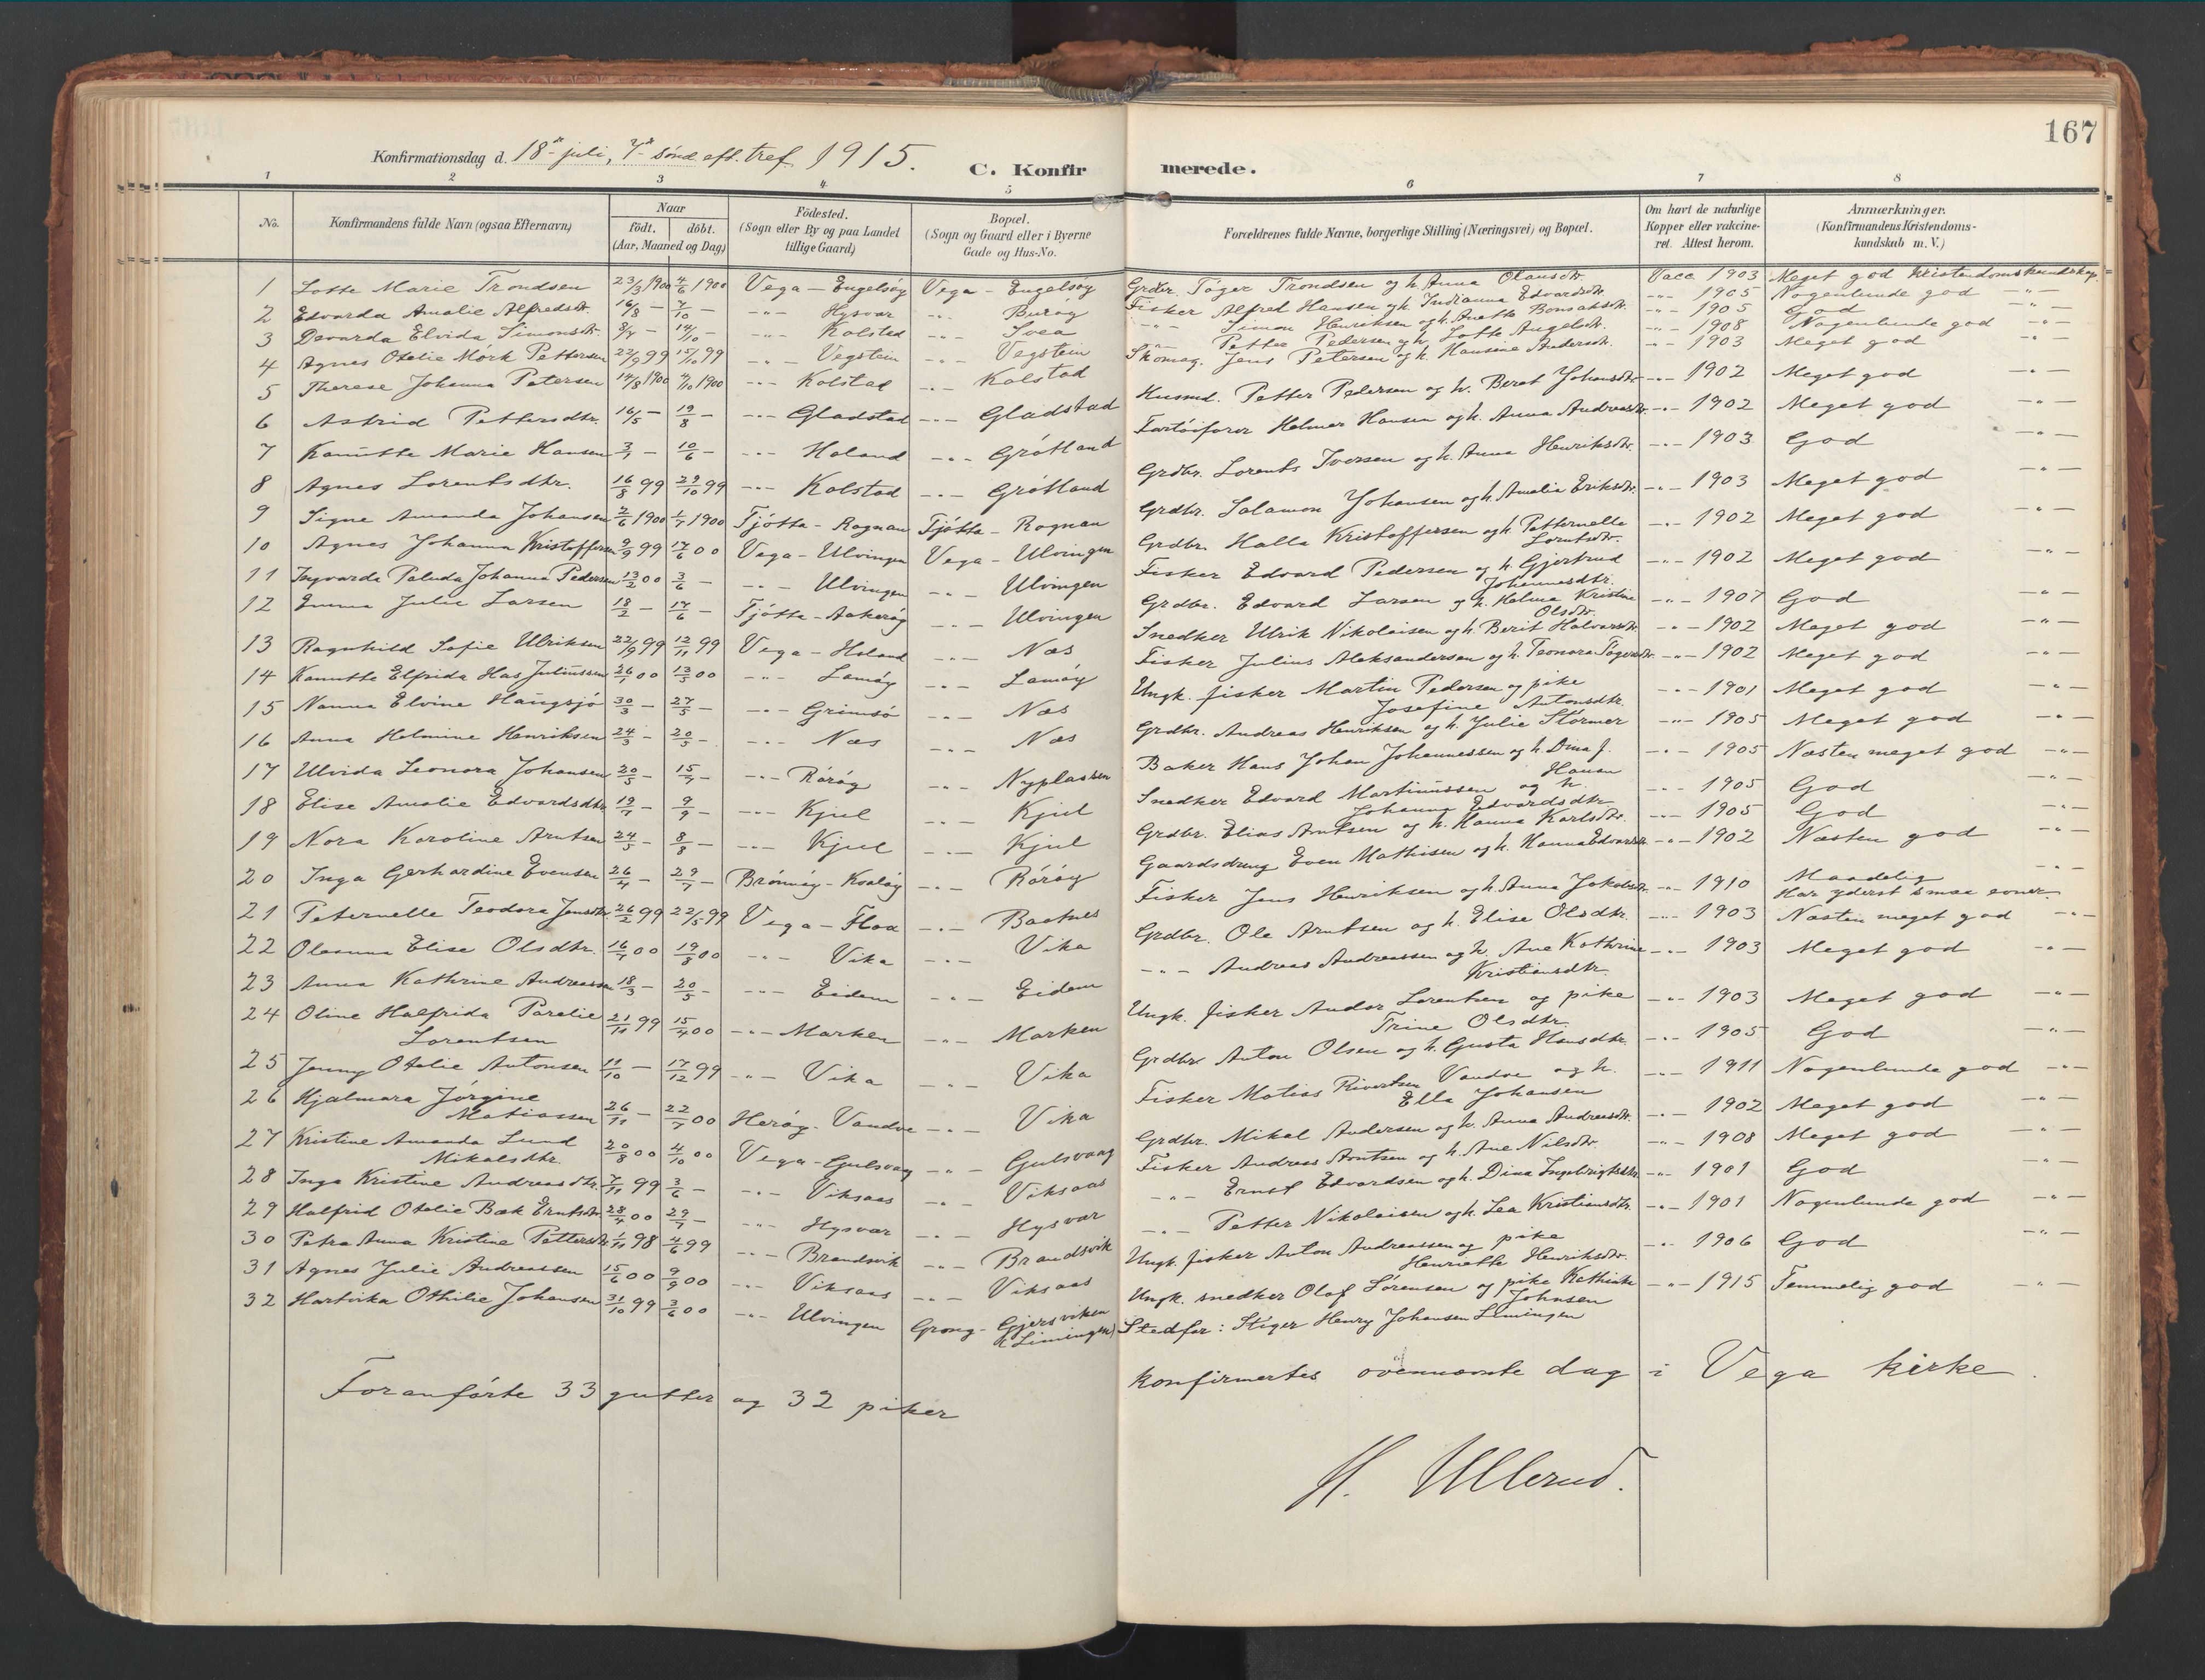 167
Konfirmationsdag d. 18de juli, 7de sönd. eft. tref. 1915.
C. Konfirmerede.
1 2 3 4 5 6 7 8
No.
Konfirmandens fulde Navn (ogsaa Efternavn)
Naar
födt. döbt.
(Aar, Maaned og Dag)
Födested.
(Sogn eller By og paa Landet
tillige Gaard)
Bopæl.
(Sogn og Gaard eller i Byerne
Gade og Hus-No.
Forældrenes fulde Navne, borgerlige Stilling (Næringsvei) og Bopæl.
Om havt de naturlige
Kopper eller vakcine-
ret. Attest herom.
Anmærkninger.
(Konfirmandens Kristendoms-
kundskab m. V.)
1 Lotte Marie Trondsen 23/3 1900 4/6 1900 Vega - Engelsöy Vega - Engelsöy Grdbr. Töger Trondsen og h. Anna Olausdtr. Vacc 1903 Meget god Kristendomskundskap
2 Edvarda Amalie Alfredsdtr. 16/8 — 7/10 — -"- Hysvær -"- Buröy Fisker Alfred Hansen og h. Indianna Edvardsdtr. -"- 1905 Nogenlunde god -"-
3 Devarda Elvida Simonsdtr. — 14/10 — -"- Kolstad -"- Svea -"- Simon Henriksen og h. Anette Bonsaksdtr. -"- 1905 God -"-
4 Agnes Otelie Mörk Pettersen 22/9 99 15/10 99 -"- Vegstein -"- Vegstein -"- Petter Pedersen og h. Lotte Angelsdtr. -"- 1908 Nogenlunde god -"-
5 Therese Johanna Petersen 14/8 1900 4/10 1900 -"- Kolstad -"- Kolstad Skomag. Jens Petersen og h. Hansine Andersdtr. -"- 1903 Meget god -"-
6 Astrid Pettersdtr. 16/5 — 19/8 — -"- Gladstad -"- Gladstad Husmd. Petter Pedersen og h. Beret Johansdtr. -"- 1902 Meget god -"-
7 Kanutte Marie Hansen 3/1 — 10/6 — -"- Holand -"- Grötland Fartöiförer Helmer Hansen og h. Anna Andreasdtr. -"- 1902 Meget god -"-
8 Agnes Lorentsdtr. 16/8 99 29/10 99 -"- Kolstad -"- Grötland Grdbr. Lorents Iversen og h. Anna Henriksdtr. -"- 1903 God -"-
9 Signe Amanda Johansen 2/6 1900 1/7 1900 Tjötta - Rognan Tjötta - Rognan Grdbr. Salamon Johansen og h. Amalia Eriksdtr. -"- 1903 Meget god -"-
10 Agnes Johanna Kristoffersen 9/9 99 17/6 00 Vega - Ulvingen Vega - Ulvingen Grdbr. Halla Kristoffersen og h. Petternelle Lorntsdtr. -"- 1902 Meget god -"-
11 Ingvarda Paluda Johanna Pedersen 13/2 00 3/6 — -"- Ulvingen -"- Ulvingen Fisker Edvard Pedersen og h. Gjertrud Johannesdtr. -"- 1902 Meget god -"-
12 Emma Julie Larsen 18/2 — 17/6 — Tjötta - Aakeröy -"- Ulvingen Grdbr. Edvard Larsen og h. Helma Kristine Olsdtr. -"- 1907 God -"-
13 Ragnhild Sofie Ulriksen 22/9 99 12/11 99 Vega - Holand -"- Næs Snedker Ulrik Nikolaisen og h. Berit Halvorsdtr. -"- 1902 Meget god -"-
14 Kanutte Elfrida Has Juliussen 26/1 00 13/5 00 -"- Lamöy -"- Lamöy Fisker Julius Aleksandersen og h. Teonora Tögersdtr. -"- 1902 Meget god -"-
15 Nanna Elvine Haugsjö 30/3 — 27/5 — -"- Grimsö -"- Næs Ungk. fisker Martin Pedersen og pike Josefine Antonsdtr. -"- 1901 Meget god -"-
16 Anna Helmine Henriksen 24/3 — 20/5 — -"- Næs -"- Næs Grdbr. Andreas Henriksen og h. Julie Störmer -"- 1905 Meget god -"-
17 Ulvida Leonora Johansen 20/5 — 15/7 — -"- Röröy -"- Nyplassen Baker Hans Johan Johannessen og h. Dina J. Hansen -"- 1905 Næsten meget god -"-
18 Elise Amalie Edvardsdtr. 19/7 — 9/9 — -"- Kjul -"- Kjul Snedker Edvard Martinussen og h. Johanna Edvardsdtr. -"- 1905 God -"-
19 Nora Karoline Arntsen 24/5 — 8/8 — -"- Kjul -"- Kjul Grdbr. Elias Arntsen og h. Hanna Karlsdtr. -"- 1905 God -"-
20 Inga Gerhardine Evensen 26/4 — 29/7 — Brönnöy - Kvalöy -"- Röröy Gaardsdreng Even Mathisen og h. Hanna Edvardsdtr. -"- 1902 Næsten god -"-
21 Peternelle Teodora Jensdtr. 26/2 99 22/5 99 Vega - Floa -"- Baatnes Fisker Jens Henriksen og h. Anna Jakobsdtr. -"- 1910 Maadelig -"- Har yderst smaa evner.
22 Olasuna Elise Olsdtr. 16/4 00 19/8 00 -"- Vika -"- Vika Grdbr. Ole Arntsen og h. Elise Olsdtr. -"- 1903 Næsten meget god -"-
23 Anna Kathrine Andreassen 18/3 — 20/5 — -"- Eidem -"- Eidem -"- Andreas Andreassen og h. Ane Kathrine Kristiansdtr. -"- 1903 Meget god -"-
24 Oline Halfrida Parelie Lorentsen 21/11 99 15/4 00 -"- Marken -"- Marken Ungk. fisker Andor Lorentsen og pike Trine Olsdtr. -"- 1903 Meget god -"-
25 Jenny Otelie Antonsen 11/10 — 17/12 99 -"- Vika -"- Vika Grdbr. Anton Olsen og h. Gusta Hansdtr. -"- 1905 God -"-
26 Hjalmara Jörgine Matiassen 26/11 — 22/7 00 Heröy - Vandve -"- Vika Fisker Matias Rivertsen Vandve og h. Ella Johansen -"- 1911 Nogenlunde god -"-
27 Kristine Amanda Lund Mikalsdtr. 20/8 00 4/10 00 Vega - Gulsvaag -"- Gulsvaag Grdbr. Mikal Andersen og h. Anna Andreasdtr. -"- 1902 Meget god -"-
28 Inga Kristine Andreasdtr. 7/11 99 3/6 — -"- Viksaas -"- Viksaas Fisker Andreas Arntsen og h. Ane Nilsdtr. -"- 1908 Meget god -"-
29 Halfrid Otelie Bæk Ernstsdtr. 28/4 00 29/7 — -"- Hysvær -"- Hysvær -"- Ernst Edvardsen og h. Dina Ingebrigtsdtr. -"- 1901 God -"-
30 Petra Anna Kristine Pettersdtr. 1/11 98 4/6 99 -"- Brandsvik -"- Brandsvik -"- Petter Nikolaisen og h. Lea Kristiansdtr. -"- 1901 Nogenlunde god -"-
31 Agnes Julie Andreassen 15/6 00 9/9 00 -"- Viksaas -"- Viksaas Ungk. fisker Anton Andreassen og pike Henriette Henriksdtr. -"- 1906 God -"-
32 Hartvika Othilie Johansen 31/10 99 3/6 00 -"- Ulvingen Grong - Gjersviken (Limingen) Ungk. snedker Olaf Sörensen og pike Kathinka Johnsen -"- 1915 Temmelig god -"-
Stedfar: Stiger Henry Johansen Limingen
Foranförte 33 gutter og 32 piker konfirmertes ovennævnte dag i Vega kirke.
H. Ullerud.